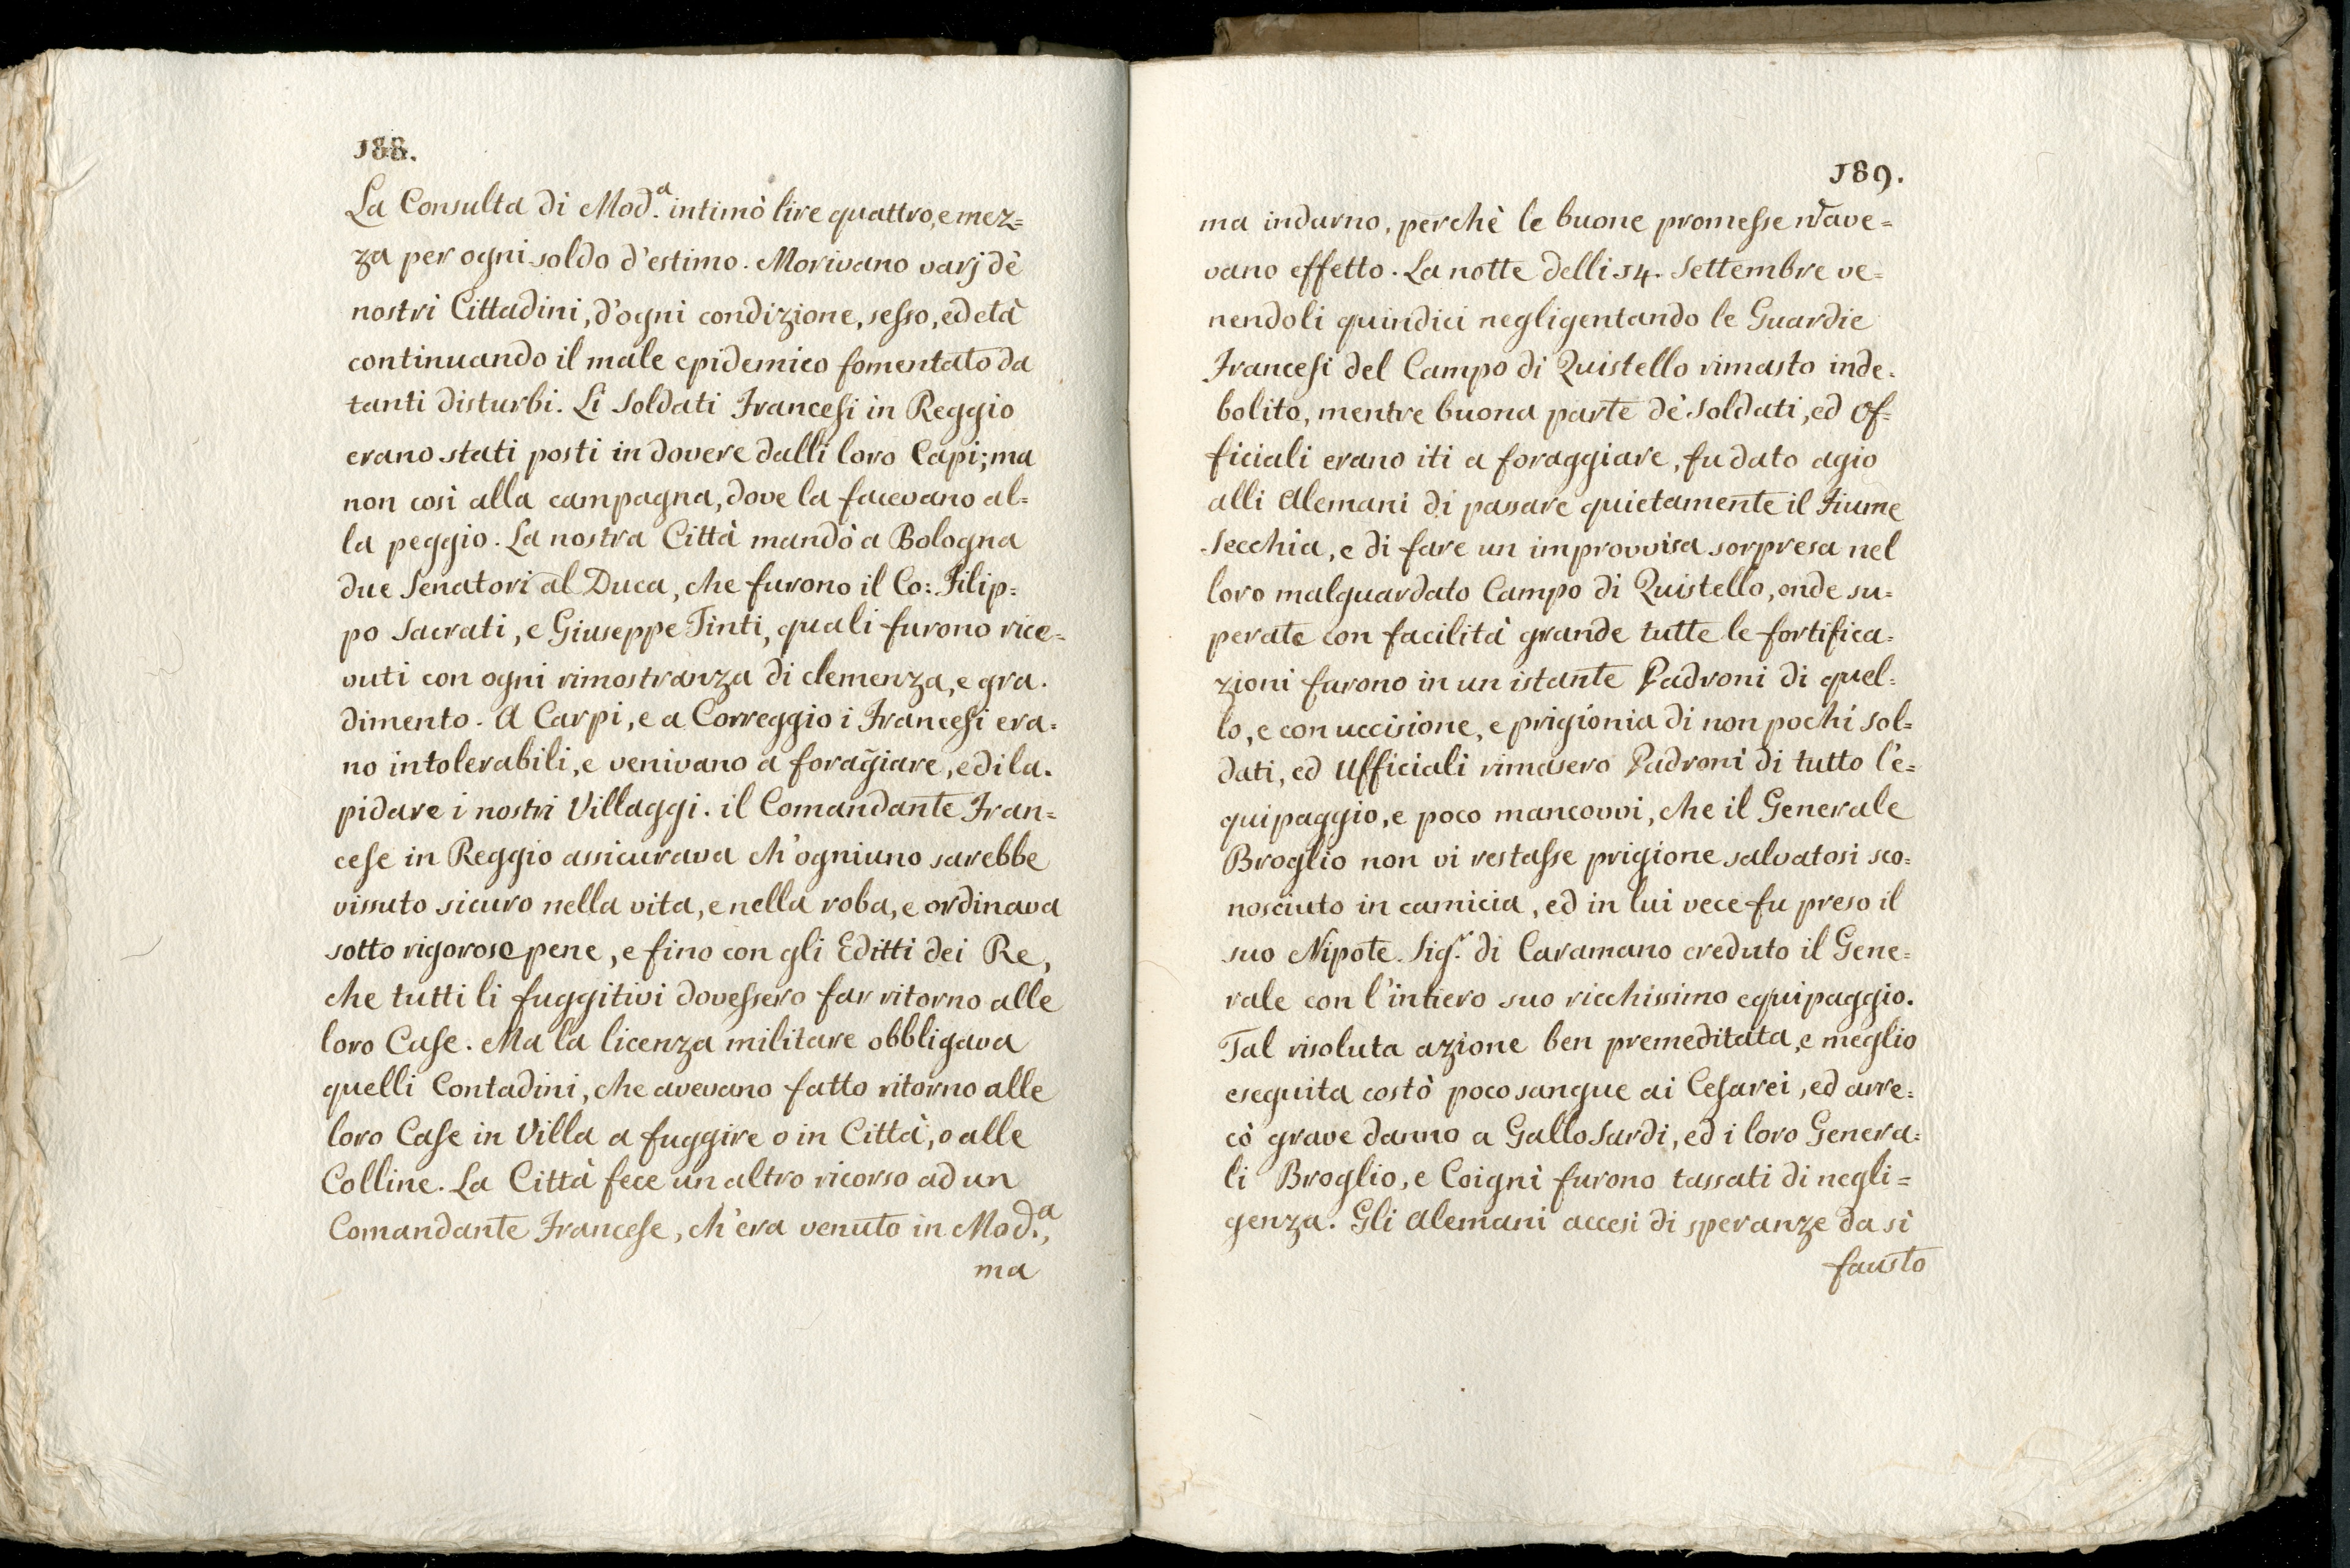 188.
La Consulta di Mod.ª intimò lire quattro, e mez=
za per ogni soldo d'estimo. Morivano varj dè
nostri Cittadini, d'ogni condizione, sesso, ed età
continuando il male epidemico fomentato da
tanti disturbi. Li Soldati Francesi in Reggio
erano stati posti in dovere dalli loro Capi; ma
non così alla campagna, dove la facevano al=
la peggio. La nostra Città mandò a Bologna
due Senatori al Duca, che furono il Co: Filip=
po Sacrati, e Giuseppe Tinti, quali furono rice=
vuti con ogni rimostranza di clemenza, e gra.
dimento. A Carpi, e a Correggio i Francesi era=
no intolerabili, e venivano a forag̃iare, e dila.
pidare i nostri Villaggi. il Comandante Fran=
cese in Reggio assicurava ch'ogniuno sarebbe
vissuto sicuro nella vita, e nella roba, e ordinava
sotto rigorose pene, e fino con gli Editti dei Re,
che tutti li fuggitivi dovessero far ritorno alle
loro Case. Ma la licenza militare obbligava
quelli Contadini, che avevano fatto ritorno alle
loro Case in Villa a fuggire o in Città, o alle
Colline. La Città fece un altro ricorso ad un
Comandante Francese, ch'era venuto in Mod.ª,
ma
189.
ma indarno, perchè le buone promesse ñ ave=
vano effetto. La notte delli 14. Settembre ve=
nendoli quindici negligentando le Guardie
Francesi del Campo di Quistello rimasto inde.
bolito, mentre buona parte dè Soldati, ed Of=
ficiali erano iti a foraggiare, fu dato agio
alli Alemani di passare quietamente il Fiume
Secchia, e di fare un improvvisa sorpresa nel
loro malguardato Campo di Quistello, onde su=
perate con facilità grande tutte le fortifica=
zioni furono in un istante Padroni di quel=
lo, e con uccisione, e prigionia di non pochi Sol=
dati, ed Ufficiali rimasero Padroni di tutto l'e=
quipaggio, e poco mancovvi, che il Generale
Broglio non vi restasse prigione salvatosi sco=
nosciuto in camicia, ed in lui vece fu preso il
suo Nipote. Sig.r di Caramano creduto il Gene=
rale con l'intiero suo ricchissimo equipaggio.
Tal risoluta azione ben premeditata, e meglio
eseguita costò poco sangue ai Cesarei, ed arre=
cò grave danno a Gallo Sardi, ed i loro Genera=
li Broglio, e Coignì furono tassati di negli=
genza. Gli Alemani accesi di speranze da sì
fausto